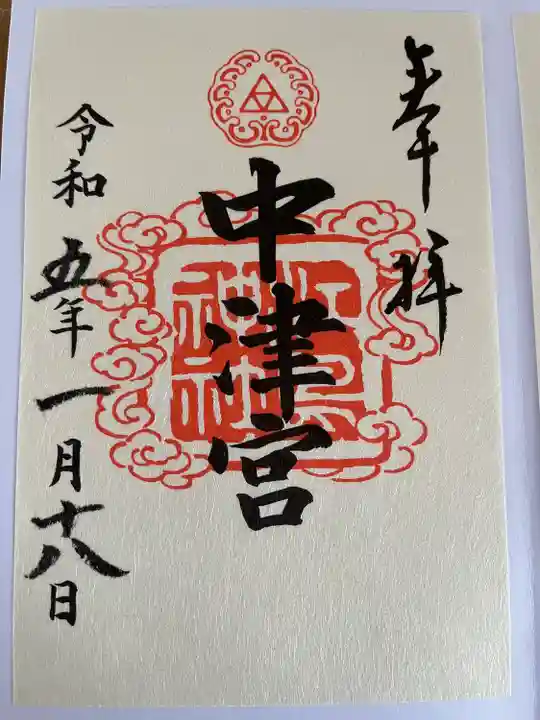 奉拝
中津宮
令和五年一月十八日